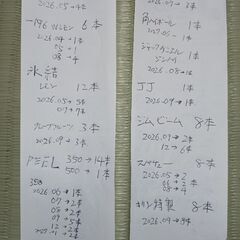 2026.05→4本
-196 レモン 6本
2026.04→1本
05→1
08→4
氷結
レモン 12本
2026.05→5本
07→7本
グレープフルーツ 3本
2026.09→3本
PEEL 350→14本
500→1本
350
2026.06→1本
07→2本
08→2本
09→7本
12→1本
角ハイボール 1本
2027.05→1本
ジャックダニエル
2026.08→1本
JJ 1本
2026.09→1本
ジムビーム 8本
2026.07→2本
12→6本
8本
2026.05→2
キリン特製 8本
2026.09→8本